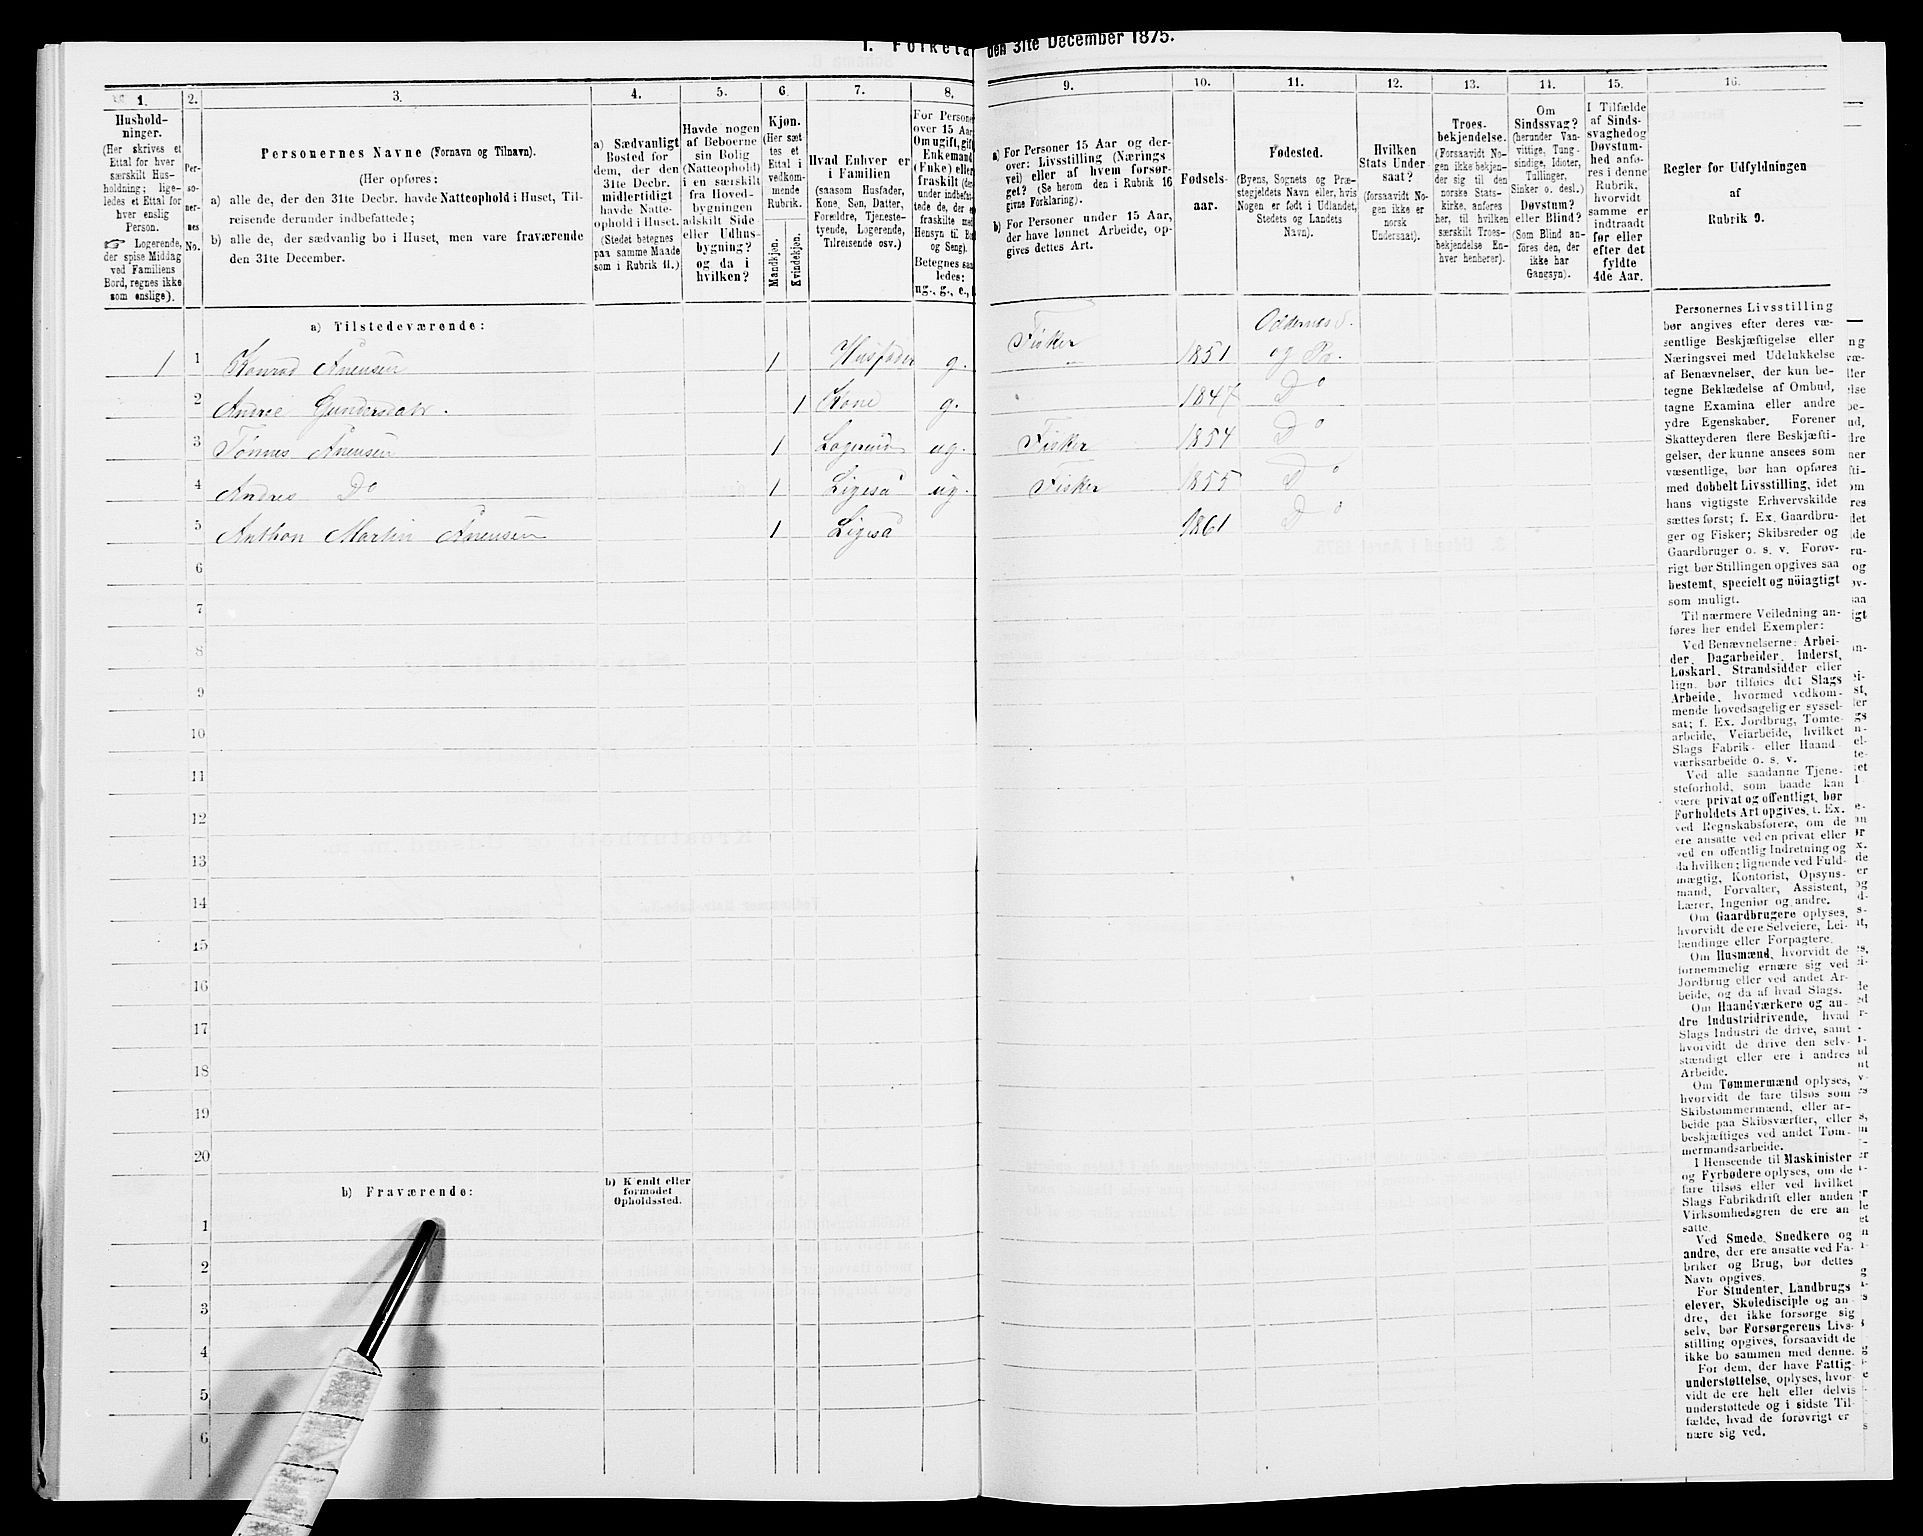 1. Folketæ den 31te December 1875.
1.
2.
3.
4.
5.
6.
7.
8.
Hushold-
ninger.
(Her skrives et
Ettal for hver
særskilt Hus-
holdning; lige-
ledes et Ettal for
hver enslig
Person.
☞ Logerende,
der spise Middag
ved Familiens
Bord, regnes ikke
som enslige).
Per-
so-
ner-
nes
No.
Personernes Navne (Fornavn og Tilnavn).
(Her opføres:
a) alle de, der den 31te Decbr. havde Natteophold i Huset, Til-
reisende derunder indbefattede;
b) alle de, der sædvanlig bo i Huset, men vare fraværende
den 31te December.
a) Sædvanligt
Bosted for
dem, der den
31te Decbr.
midlertidigt
havde Natte-
ophold i Huset.
(Stedet betegnes
paa samme Maade
som i Rubrik 11.)
Havde nogen
af Beboerne
sin Bolig
(Natteophold)
i en særskilt
fra Hoved-
bygningen
adskilt Side
eller Udhus-
bygning?
og da i
hvilken?
Kjøn.
(Her sæt
tes et
Ettal i
vedkom-
mende
Rubrik.
Mandkjøn.
Kvindekjøn.
Hvad Enhver er
i Familien
(saasom Husfader,
Kone, Søn, Datter,
Forældre, Tjeneste-
tyende, Logerende,
Tilreisende osv.)
For Persone
over 15 Aar
Om ugift, gift
Enkemand
(Enke) eller
fraskilt (de
under indbefat
tede de, der e
fraskilte med
Hensyn til Bo
og Seng).
Betegnes saa
ledes:
ug., g., e., f.
9.
10.
11.
12.
13.
14.
15.
16.
a) For Personer 15 Aar og der-
over: Livsstilling (Nærings
vei) eller af hvem forsør-
get? (Se herom den i Rubrik 16
givne Forklaring).
b) For Personer under 15 Aar,
der have lønnet Arbeide, op-
gives dettes Art.
Fødsels-
aar.
Fødested.
(Byens, Sognets og Præ-
stegjeldets Navn eller, hvis
Nogen er født i Udlandet,
Stedets og Landets
Navn).
Hvilken
Stats Under-
saat?
(forsaavidt No-
gen ikke er
norsk
Undersaat).
Troes-
bekjendelse.
(Forsaavidt No-
gen ikke bekjen-
der sig til den
norske Stats-
kirke, anføres
her, til hvilken
særskilt Troes-
bekjendelse En-
hver henhører).
Om
Sindssvag?
(herunder Van-
vittige, Tung-
sindige, Idioter,
Tullinger,
Sinker o. desl.)
Døvstum?
eller Blind?
(Som Blind an-
føres den, der
ikke har
Gangsyn).
I Tilfælde
af Sinds-
svaghed og
Døvstum-
hed anfø-
res i denne
Rubrik,
hvorvidt
samme er
indtraadt
før eller
efter det
fyldte
4de Aar.
Regler for Udfyldningen
af
Rubrik 9.
a) Tilstedeværende:
1 1 Konrad Anensen 1 Husfader g. Fisker 1851 Oddernes S.
og Pr.
2 Andrie Gundersdatr. 1 Kone g. 1847 Do
3 Tønnes Anensen 1 Logerend ug. Fisker 1854 Do
4 Andres Do 1 Ligeså ug. Fisker 1855 Do
5 Anthon Martin Anensen 1 Ligeså 1861 Do
6
7
8
9
10
11
12
13
14
15
16
17
18
19
20
b) Fraværende:
b) Kjendt eller
formodet
Opholdssted.
1
2
3
4
5
6
Personernes Livsstilling
bør angives efter deres væ-
sentlige Beskjæftigelse eller
Næringsvei med Udelukkelse
af Benævnelser, der kun be-
tegne Beklædelse af Ombud,
tagne Examina eller andre
ydre Egenskaber. Forener
Skatteyderen flere Beskjæfti-
gelser, der kunne ansees som
væsentlige, bør han opføres
med dobbelt Livsstilling, idet
hans vigtigste Erhvervskilde
sættes først; f. Ex. Gaardbru-
ger og Fisker; Skibsreder og
Gaardbruger o. s. v. Forøv-
rigt bør Stillingen opgives saa
bestemt, specielt og nøiagtigt
som muligt.
Til nærmere Veiledning an-
føres her endel Exempler:
Ved Benævnelserne: Arbei-
der, Dagarbeider, Inderst,
Løskarl, Strandsidder eller
lign. bør tilføies det Slags
Arbeide, hvormed vedkom-
mende hovedsagelig er syssel-
sat; f. Ex. Jordbrug, Tomte-
arbeide, Veiarbeide, hvilket
Slags Fabrik- eller Haand-
værksarbeide o. s. v.
Ved alle saadanne Tjene-
steforhold, som baade kan
være privat og offentligt, bør
Forholdets Art opgives, f. Ex.
ved Regnskabsførere, om de
ere ansatte ved en privat eller
ved en offentlig Indretning og
da hvilken; lignende ved Fuld-
mægtig, Kontorist, Opsyns-
mand, Forvalter, Assistent,
Lærer, Ingeniør og andre.
Om Gaardbrugere oplyses,
hvorvidt de ere Selveiere, Lei-
lændinge eller Forpagtere.
Om Husmænd, hvorvidt de
fornemmelig ernære sig ved
Jordbrug eller ved andet Ar-
beide, og da af hvad Slags.
Om Haandværkere og an-
dre Industridrivende, hvad
Slags Industri de drive, samt
hvorvidt de drive den selv-
stændigt eller ere i andres
Arbeide.
Om Tømmermænd oplyses,
hvorvidt de fare tilsøs som
Skibstømmermænd, eller ar-
beide paa Skibsværfter, eller
beskjæftiges ved andet Tøm-
mermandsarbeide.
I Henseende til Maskinister
og Fyrbødere oplyses, om de
fare tilsøs eller ved hvilket
Slags Fabrikdrift eller anden
Virksomhedsgren de ere an-
satte.
Ved Smede, Snedkere og
andre, der ere ansatte ved Fa-
briker og Brug, bør dettes
Navn opgives.
For Studenter, Landbrugs
elever, Skoledisciple og an-
dre, der ikke forsørge sig
selv, bør Forsørgerens Livs-
stilling opgives, forsaavidt de
ikke bo sammen med denne.
For dem, der have Fattig-
understøttelse, oplyses, hvor-
vidt de ere helt eller delvis
understøttede og i sidste Til-
fælde, hvad de forøvrigt er
nære sig ved.